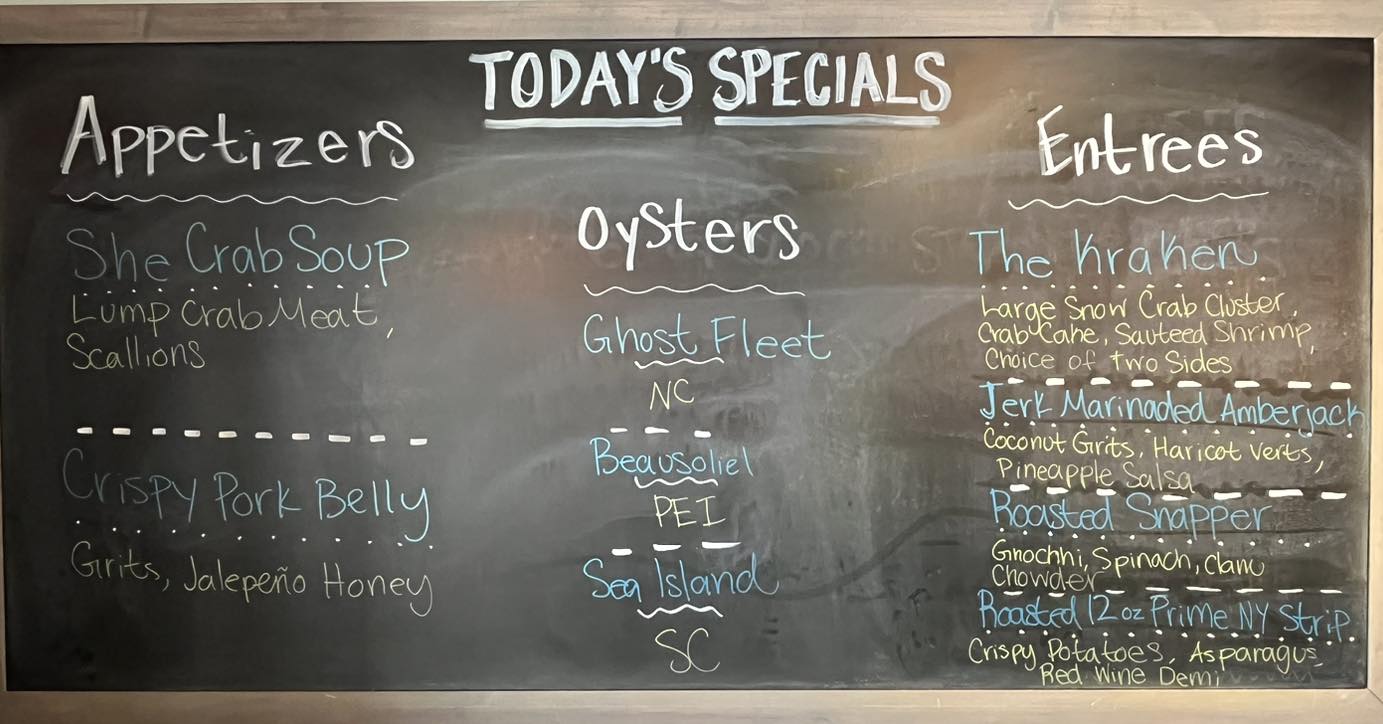 TODAY'S SPECIALS
Appetizers
She Crab Soup
Lump Crab Meat,
Scallions
Crispy Pork Belly
Grits, Jalepeño Honey
Oysters
Ghost Fleet
NC
Beausoliel
PEI
Sea Island
SC
Entrees
The Kraken
Large Snow Crab Cluster,
Crab Cake, Sauteed Shrimp,
Choice of Two Sides
Jerk Marinaded Amberjack
Coconut Grits, Haricot Verts,
Pineapple Salsa
Roasted Snapper
Gnochhi, Spinach, Clam
Chowder
Roasted 12 oz Prime NY Strip
Crispy Potatoes, Asparagus
Red Wine Demi